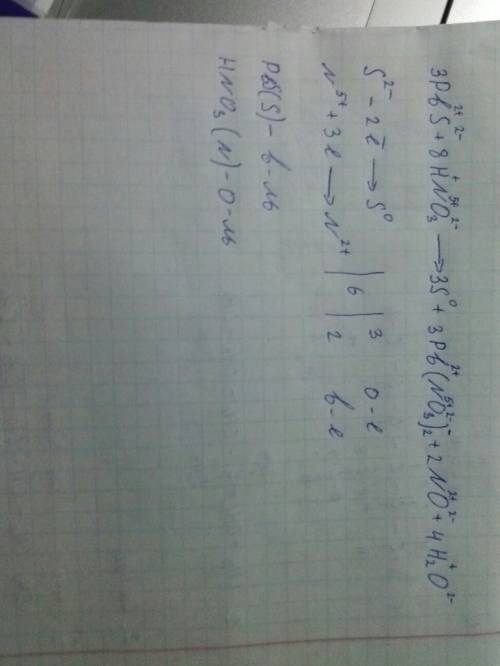 3PbS + 8HNO₃ → 3S⁰ + 3Pb(NO₃)₂ + 2NO + 4H₂O
S²⁻ - 2ē → S⁰ | 6 | 3 о-е
N⁵⁺ + 3е → N²⁺ | 2 в-е
PbS(S) - в-ль
HNO₃(N) - о-ль